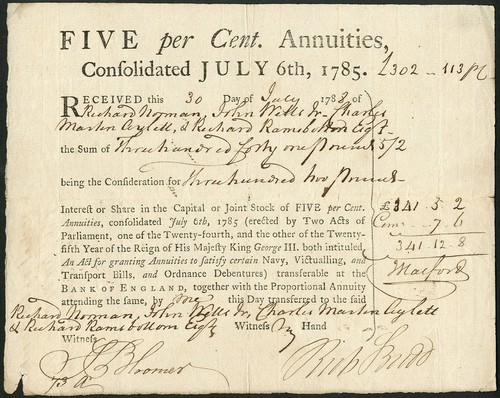 FIVE per Cent. Annuities,
Consolidated JULY 6th, 1785. £302 — 113 p Ct
RECEIVED this 30 Day of July 1788 of
Richard Norman, John Wells Jr. Charles
Martin Aylett, & Richard Ramsbottom Esqr.
the Sum of Three hundred forty one Pounds 5/2
being the Consideration for Three hundred two Pounds
Interest or Share in the Capital or Joint Stock of FIVE per Cent.
Annuities, consolidated July 6th, 1785 (erected by Two Acts of
Parliament, one of the Twenty-fourth, and the other of the Twenty-
fifth Year of the Reign of His Majesty King George III. both intituled,
An Act for granting Annuities to satisfy certain Navy, Victualling, and
Transport Bills, and Ordnance Debentures) transferable at the
BANK of ENGLAND, together with the Proportional Annuity
attending the same, by me this Day transferred to the said
£341 5 2
Coms 7 6
341 12 8
Richard Norman, John Wells Jr, Charles Martin Aylett
& Richard Ramsbottom Esqr Witness my Hand
Witness
Bloomer